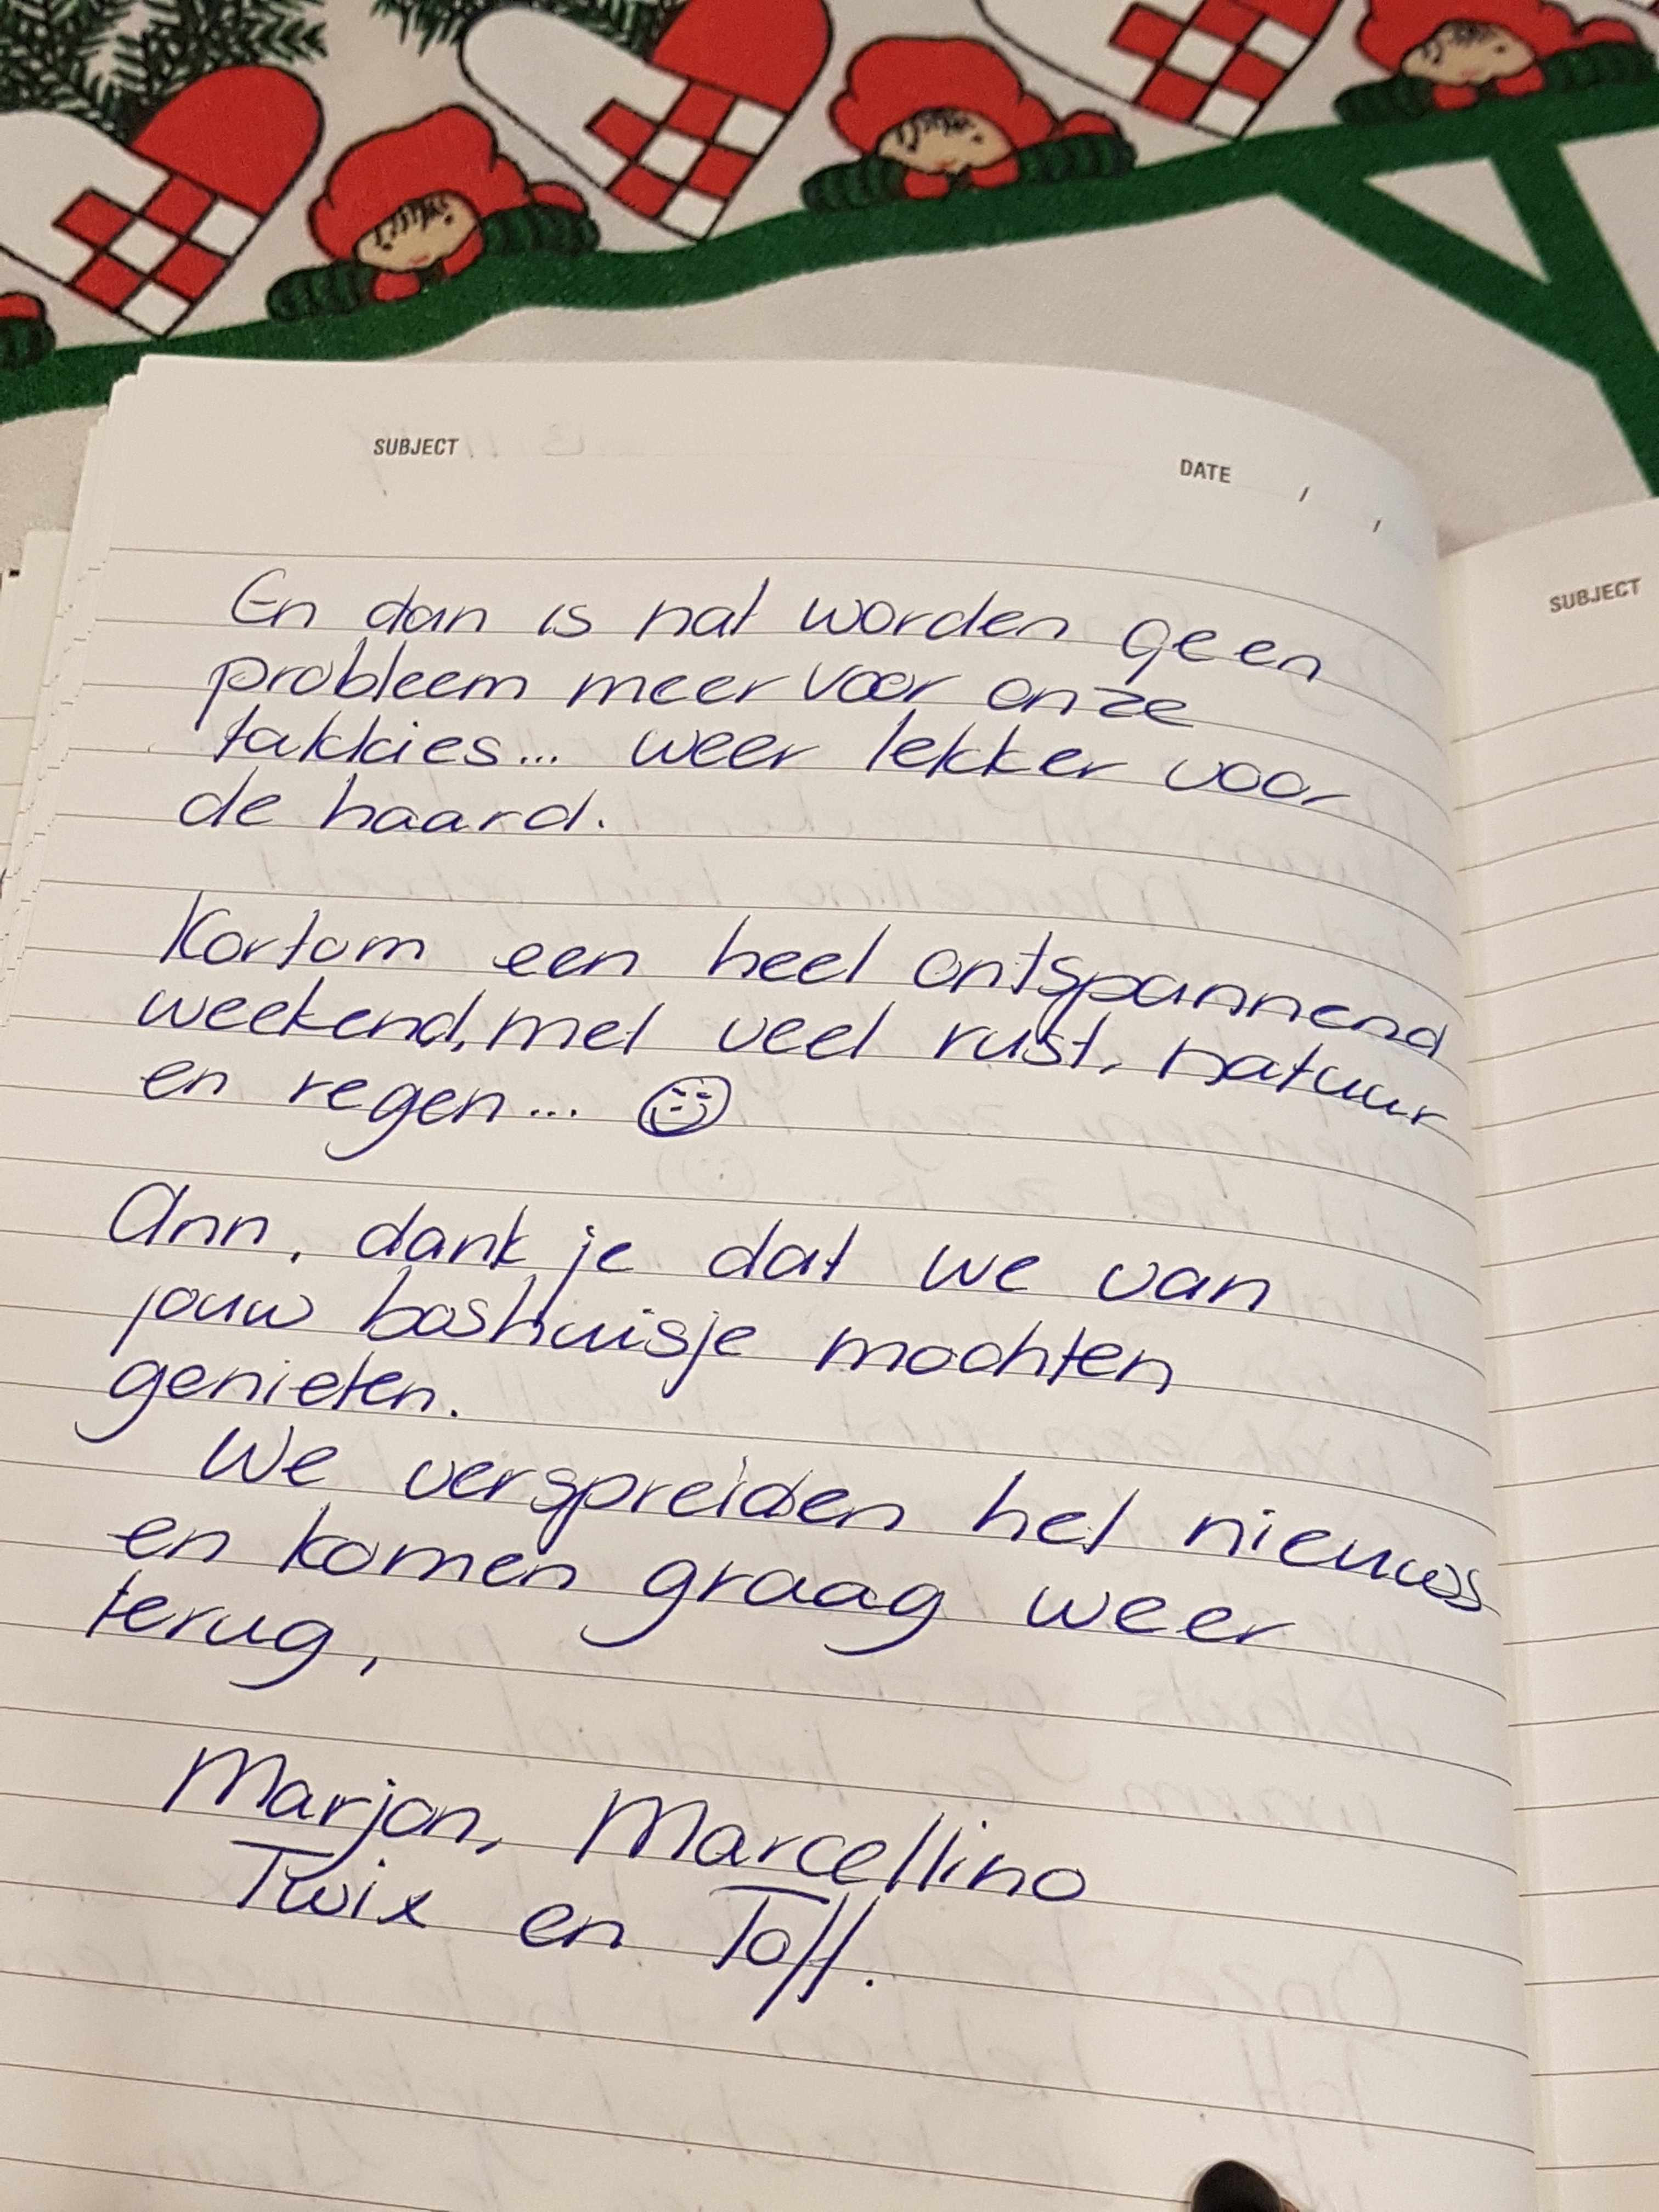 SUBJECT
DATE / /
SUBJECT
En dan is nat worden geen
probleem meer voor onze
takkies... weer lekker voor
de haard.
Kortom een heel ontspannend
weekend, met veel rust, natuur
en regen... ☺
Ann, dank je dat we van
jouw boshuisje mochten
genieten.
We verspreiden het nieuws
en komen graag weer
terug,
Marjon, Marcellino
Twix en Toff.